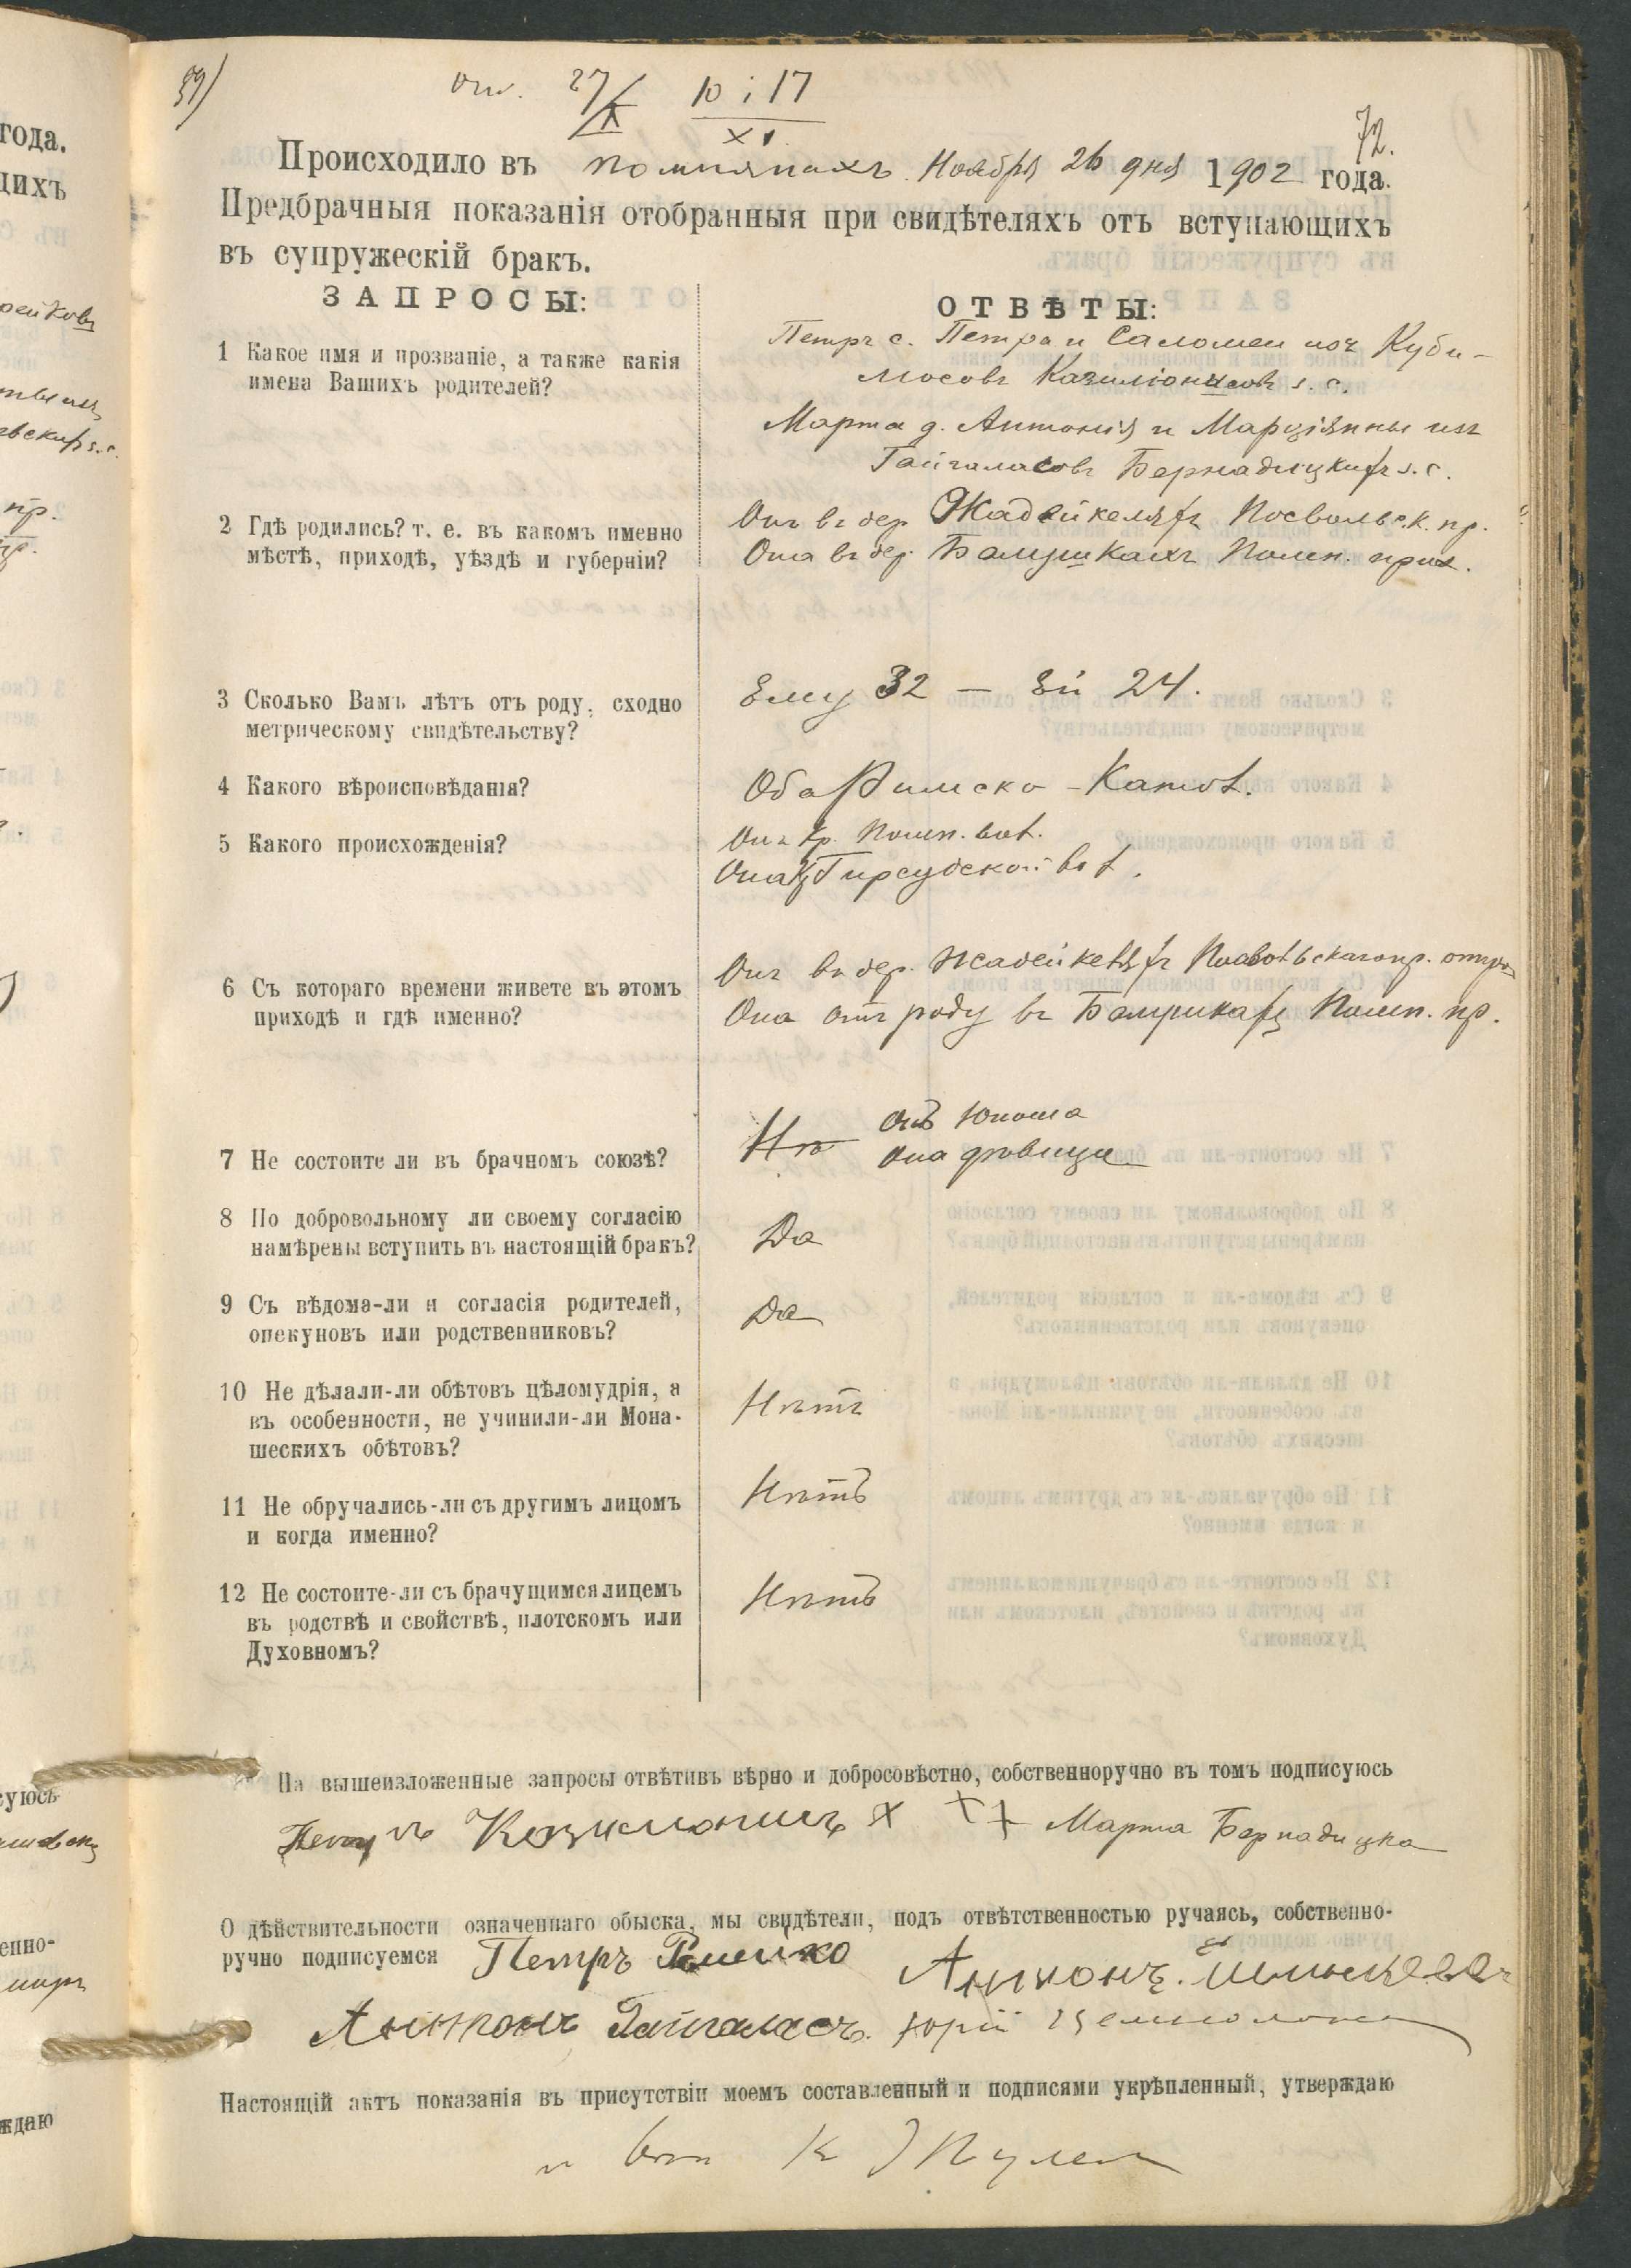 59)
27/X 10 i 17
XI.
72.
Происходило въ Помпянахъ Ноября 26 дня 1902 года.
Предбрачныя показанія отобранныя при свидѣтеляхъ отъ вступающихъ
въ супружескій бракъ.
ЗАПРОСЫ:
ОТВѢТЫ:
1 Какое имя и прозваніе, а также какія
имена Вашихъ родителей?
Петръ с. Петра и Саломеи изъ Куби-
люсовъ Казилюнисовъ s. с.
Марта д. Антонія и Марціянны изъ
Гайгаласовъ Бернадицкихъ s. с.
2 Гдѣ родились? т. е. въ какомъ именно
мѣстѣ, приходѣ, уѣздѣ и губерніи?
Онъ въ дер. Жадейкеляхъ Посвольск. пр.
Она въ дер. Балушкахъ Помп. прих.
3 Сколько Вамъ лѣтъ отъ роду, сходно
метрическому свидѣтельству?
Ему 32 — Ей 24.
4 Какого вѣроисповѣданія?
Оба Римско-Катол.
5 Какого происхожденія?
Онъ кр. Помп. вол.
Она кр. Гирсудской вол.
6 Съ котораго времени живете въ этомъ
приходѣ и гдѣ именно?
Онъ въ дер. Жадейкеляхъ Посвольскаго пр.
Она отъ роду въ Помп. пр.
7 Не состоите ли въ брачномъ союзѣ?
Онъ юноша
Она дѣвица
8 По добровольному ли своему согласію
намѣрены вступить въ настоящій бракъ?
Да
9 Съ вѣдома-ли и согласія родителей,
опекуновъ или родственниковъ?
Да
10 Не дѣлали-ли обѣтовъ цѣломудрія, а
въ особенности, не учинили-ли Мона-
шескихъ обѣтовъ?
Нѣтъ
11 Не обручались-ли съ другимъ лицомъ
и когда именно?
Нѣтъ
12 Не состоите-ли съ брачущимся лицемъ
въ родствѣ и свойствѣ, плотскомъ или
Духовномъ?
Нѣтъ
На вышеизложенные запросы отвѣтивъ вѣрно и добросовѣстно, собственноручно въ томъ подписуюсь
Петръ Казилюнисъ х х х Марта Бернадицка
О дѣйствительности означеннаго обыска, мы свидѣтели, подъ отвѣтственностью ручаясь, собственно-
ручно подписуемся Петръ Антонъ
Антонъ Гайгаласъ. Юрій
Настоящій актъ показанія въ присутствіи моемъ составленный и подписями укрѣпленный, утверждаю